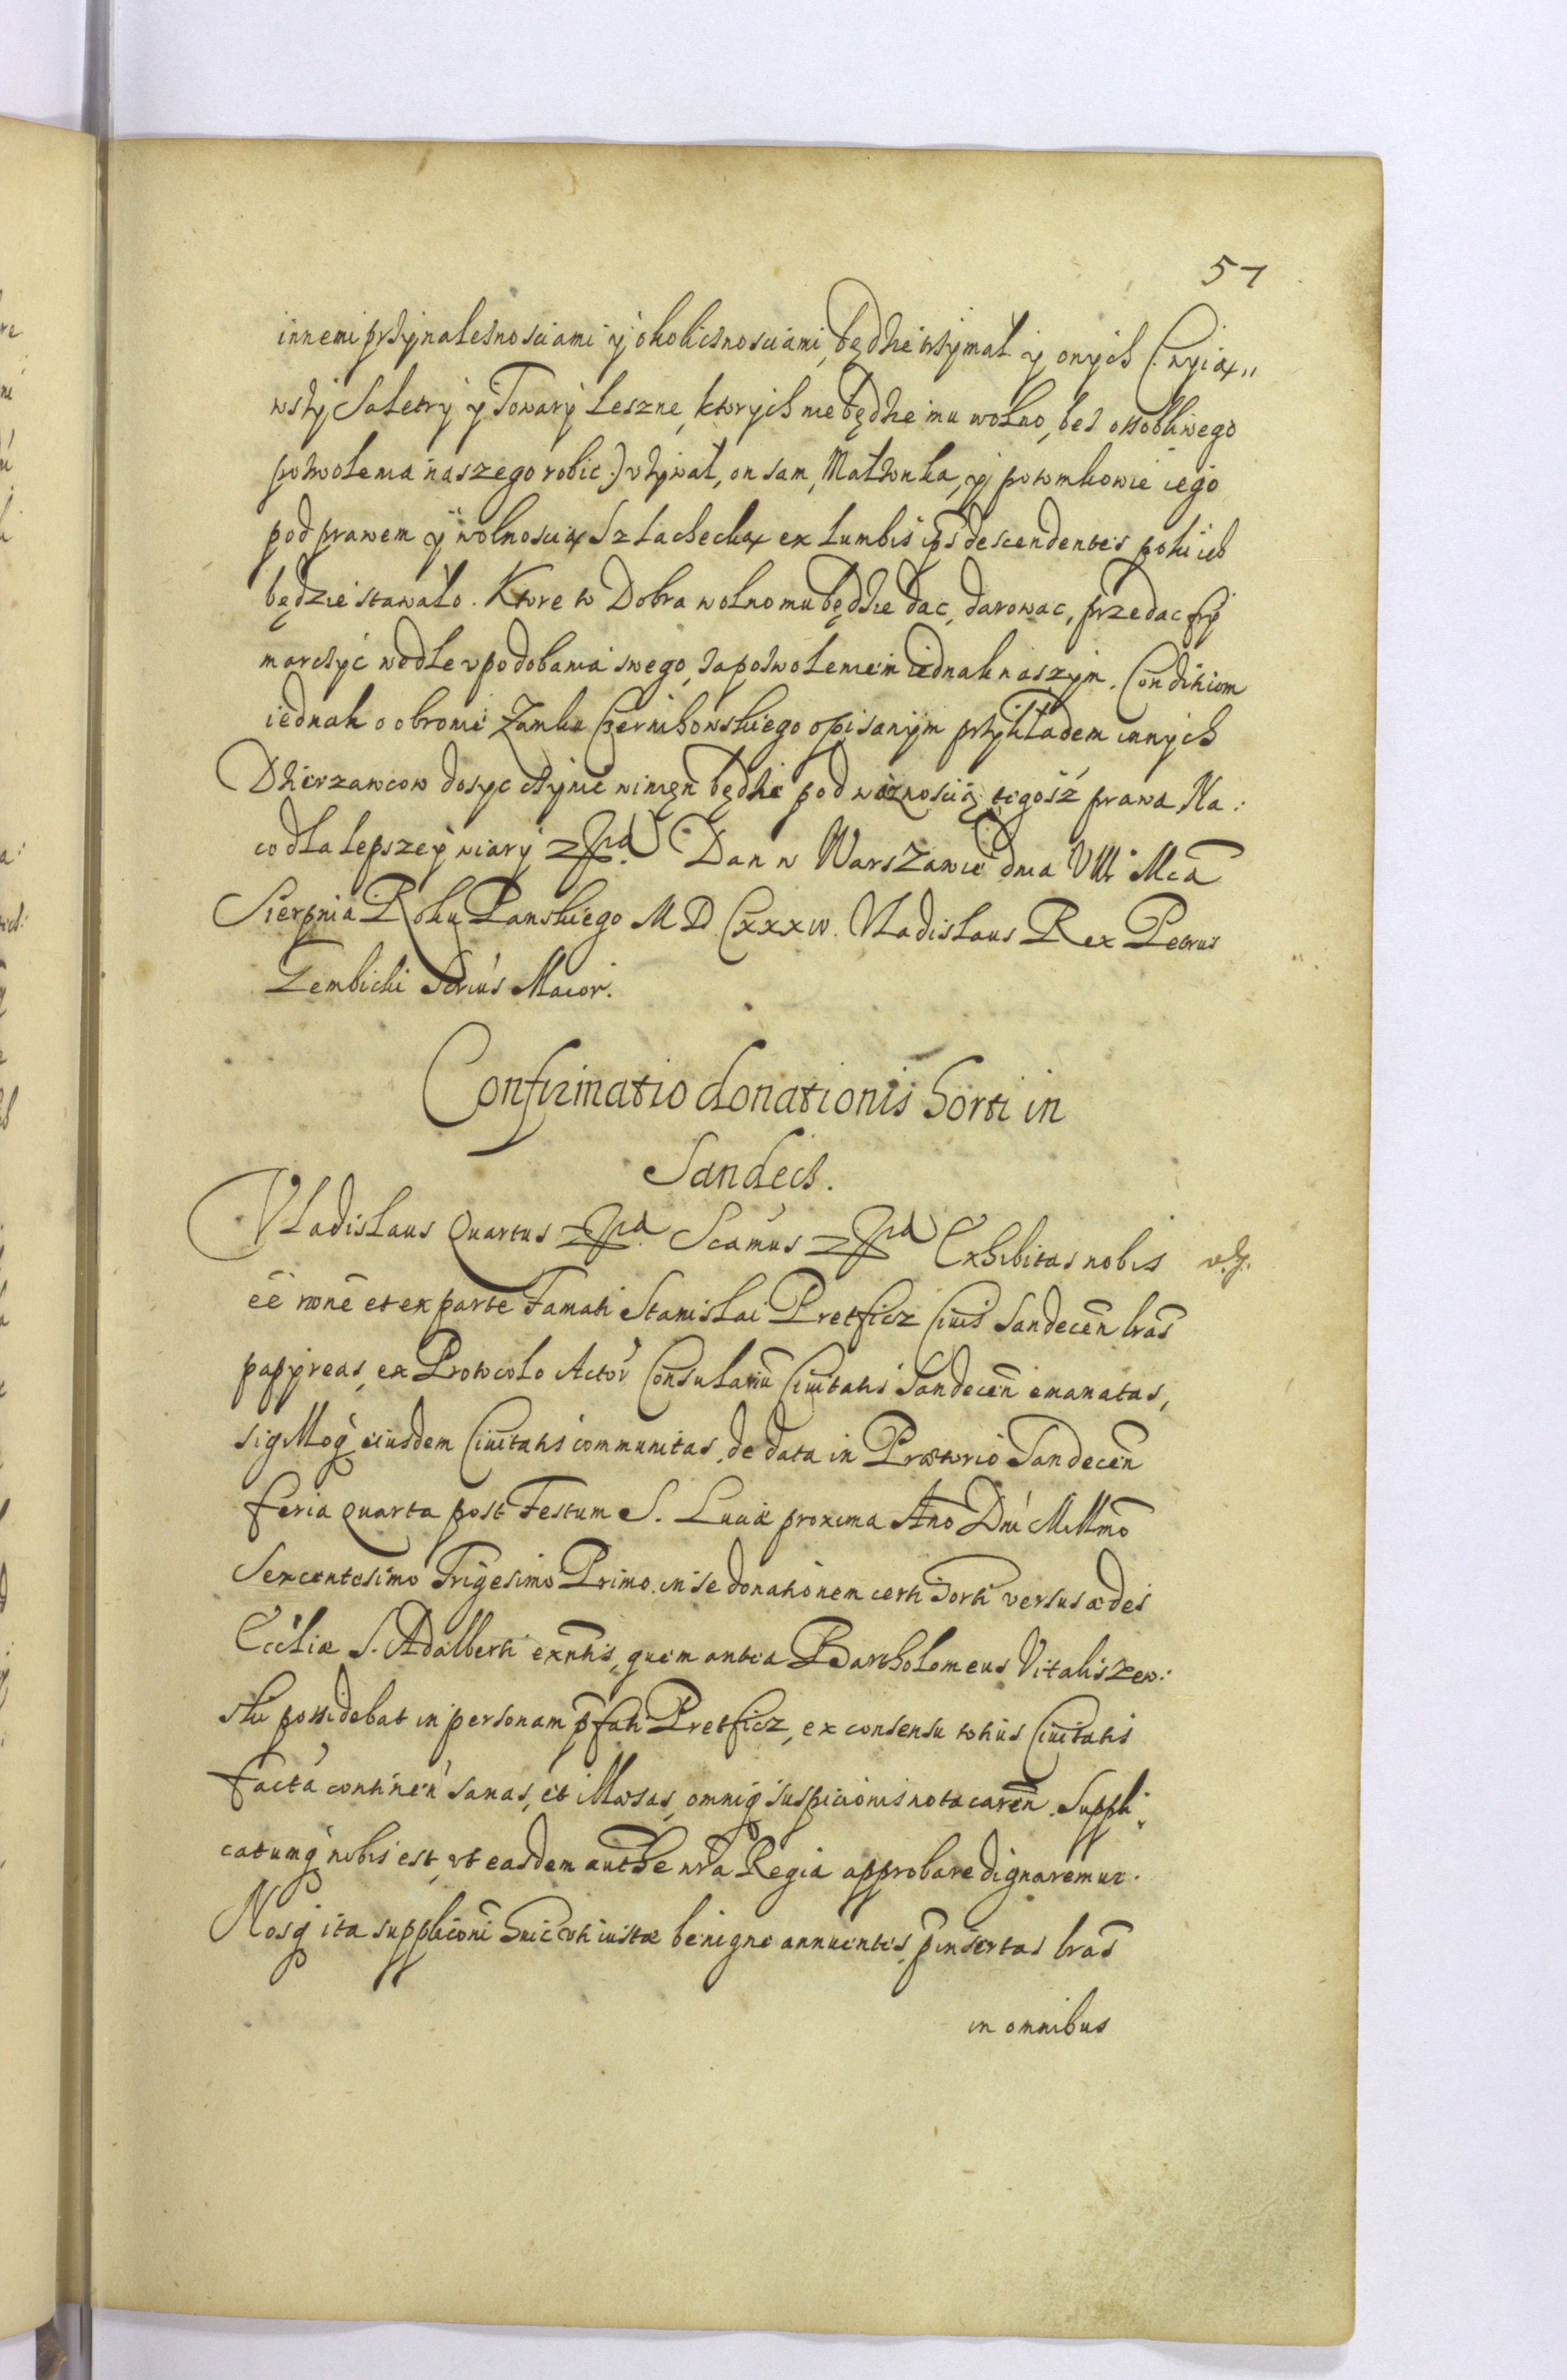 57
innemi przynależnosciami y okolicznosciami, będzie trzymał y onych (: wyiąw„
wszy Saletry y Towary Leszne, ktorych nie będzie mu wolno, bez ossobliwego
pozwolenia naszego robic :) vżywał, on sam, Małżonka, y potomkowie iego
pod prawem y wolnoscią Szlachecką ex lumbis ips descendentes poki ich
będzie stawało. Ktore to Dobra wolno mu będzie dac, darowac, przedac fry
marczyć wedle vpodobania swego, za pozwoleniem iednak naszym. Conditiom
iednak o obronie Zamku Czernihowskiego opisanym przykładem innych
Dzierzawcow dosyc czynić winięn będzie pod ważnoscią tegosz prawa Na:
co dla lepszey wiary &ra Dan w Warszawie dnia VIII Mca
Sierpnia Roku Panskiego M D CxxxIV. Vladislaus Rex Petrus
Zembicki Scrius Maior.
Confirmatio donationis horti in
Sandecz.
Vladislaus Quartus &ra Scamus &ra Exhibitas nobis
ēe noīe et ex parte Famati Stanislai Pretficz Ciuis Sandeceñ lras
papyreas, ex Protocolo Actor Consulariū Ciuitatis Sandeceñ emanatas,
sigilloq eiusdem Ciuitatis communitas, de data in Prætorio Sandeceñ
feria quarta post Festum S. Luciæ proxima Año Dni Millmo
Sexcentesimo Trigesimo Primo. in se donationem certi horti versus ædes
Ecclīæ S. Adalberti exñtis, quem antea Bartholomeus Vitaliszew:
ski possidebat in personam p̄fati Pretficz, ex consensu totius Ciuitatis
facta continen sanas, et illæsas, omniq suspicionis nota careñ. Suppli„
catumq nobis est, vt easdem authe nra Regia approbare dignaremur.
Nosq ita suppliconi huic vti iustæ benigne annuentes, p̄insertas lras
in omnibus